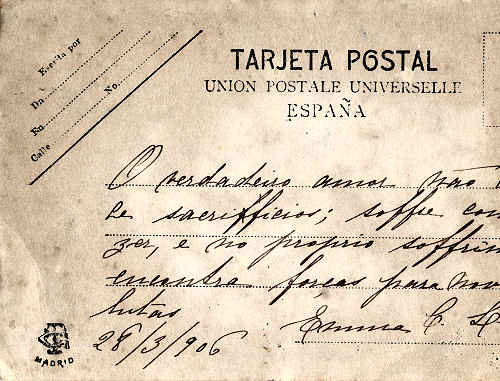 Escrita por
Da
No.
En
Calle
TARJETA POSTAL
UNION POSTALE UNIVERSELLE
ESPAÑA
O verdadeiro amor não
de sacrifficios; soffre con
zer, e no proprio soffrim
encontra forças para nov
lutas
Emma C.
28/3/906
MADRID